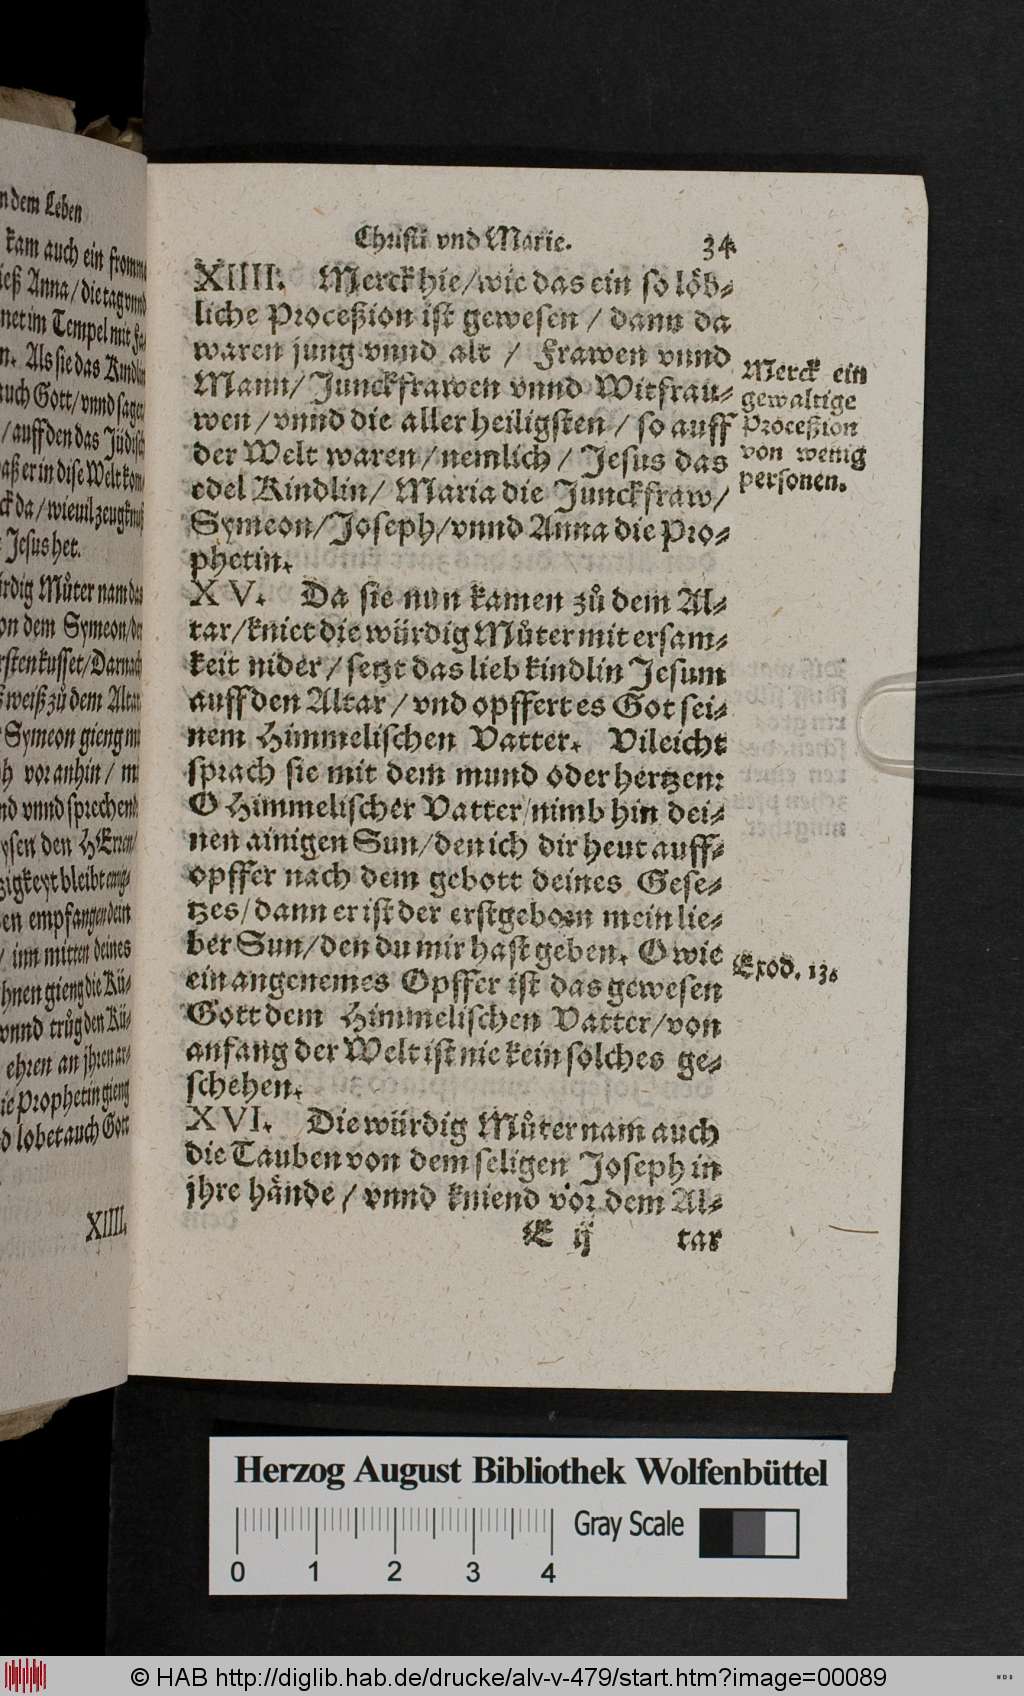 n dem Leben
kam auch ein fromme
ieß Anna / die tag vnnd
net im Tempel mit fa-
n. Als sie das Kindlin
auch Gott / vnnd saget
/ auff den das Jüdisch
aß er in dise Welt kom
ck da / wieuil zeugknuß
Jesus het.
ürdig Můter nam das
on dem Symeon / der
rsten kusset / Darnach
weiß zů dem Altar
Symeon gieng mit
h voranhin / mit
nd vnnd sprechend
ysen den HErren /
zigkeyt bleibt ewig-
en empfangen dein
/ inn mitten deines
hnen gieng die Kü-
vnnd trůg den Kü-
ehren an jhren ar-
ie Prophetin gieng
d lobet auch Gott
XIIII.
Christi vnd Marie. 34
XIIII. Merck hie / wie das ein so löb-
liche Proceßion ist gewesen / dann da
waren jung vnnd alt / Frawen vnnd
Mann / Junckfrawen vnnd Witfrau-
wen / vnnd die aller heiligsten / so auff
der Welt waren / nemlich / Jesus das
edel Kindlin / Maria die Junckfraw /
Symeon / Joseph / vnnd Anna die Pro-
phetin.
Merck ein
gewaltige
Proceßion
von wenig
personen.
XV. Da sie nun kamen zů dem Al-
tar / kniet die würdig Můter mit ersam-
keit nider / setzt das lieb kindlin Jesum
auff den Altar / vnd opffert es Got sei-
nem Himmelischen Vatter. Vileicht
sprach sie mit dem mund oder hertzen:
O Himmelischer Vatter / nimb hin dei-
nen ainigen Sun / den ich dir heut auff-
opffer nach dem gebott deines Gese-
tzes / dann er ist der erstgeborn mein lie-
ber Sun / den du mir hast geben. O wie
ein angenemes Opffer ist das gewesen
Gott dem Himmelischen Vatter / von
anfang der Welt ist nie kein solches ge-
schehen.
Exod. 13.
XVI. Die würdig Můter nam auch
die Tauben von dem seligen Joseph in
jhre hände / vnnd kniend vor dem Al-
E ij tar
Herzog August Bibliothek Wolfenbüttel
0 1 2 3 4
Gray Scale
© HAB http://diglib.hab.de/drucke/alv-v-479/start.htm?image=00089